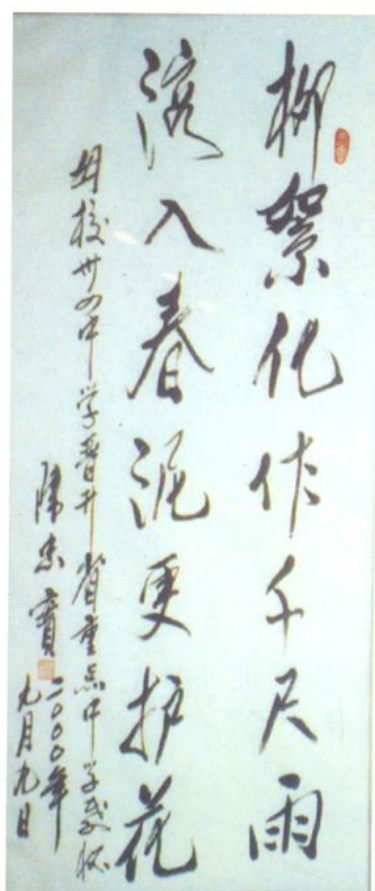 柳絮化作千尺雨
溶入春泥更护花
母校卅四中学晋升省重点中学
陈忠實
二〇〇〇年
九月九日